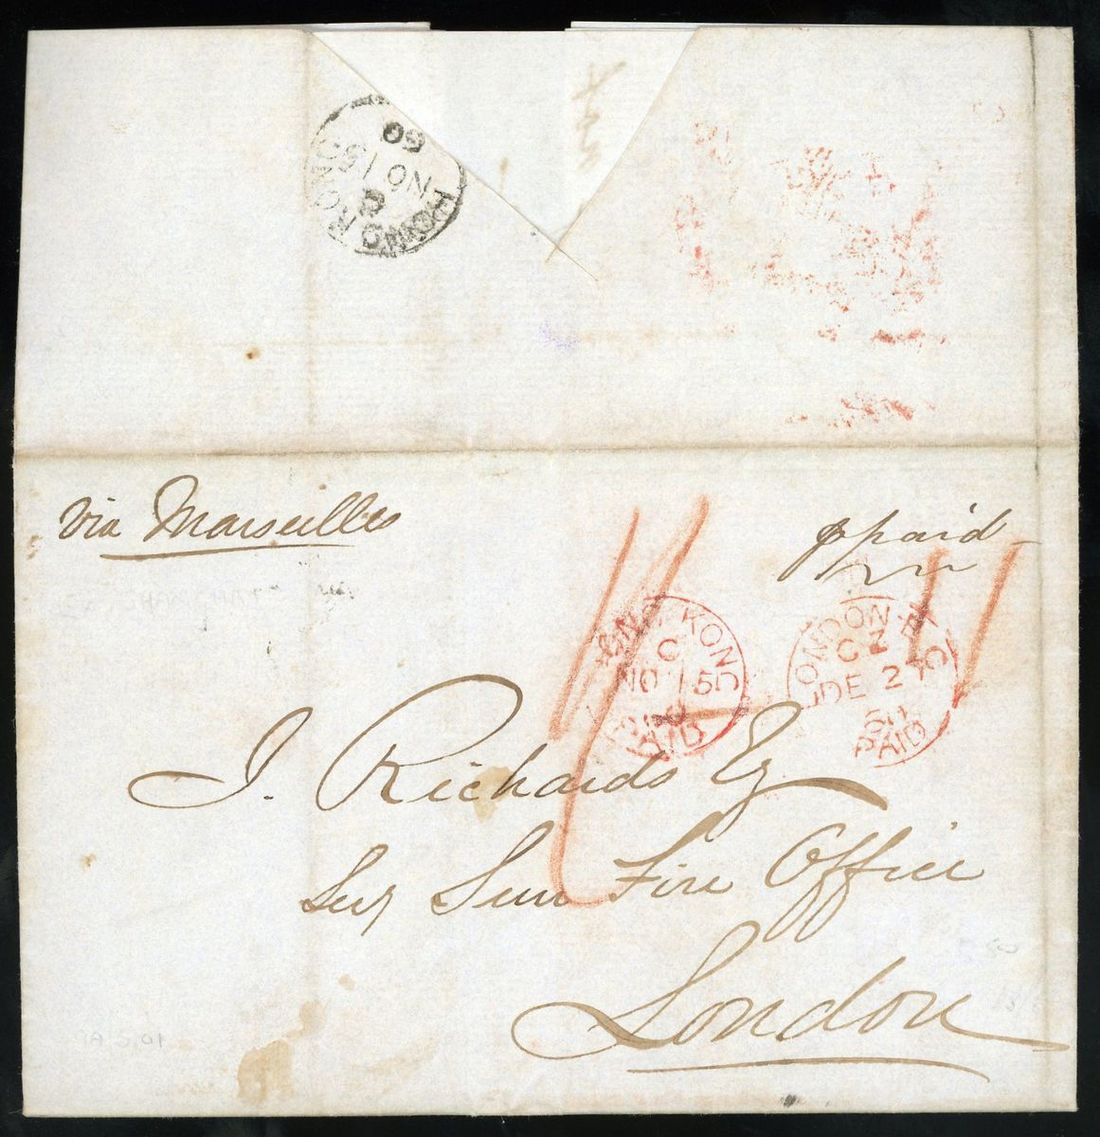 HONG KONG
C
NO 15
60
via Marseilles
ppaid
HONG KONG
C
NO 15
PAID
LONDON
CZ
DE 27
60
PAID
J. Richards Eq
Sey Sun Fire Office
London